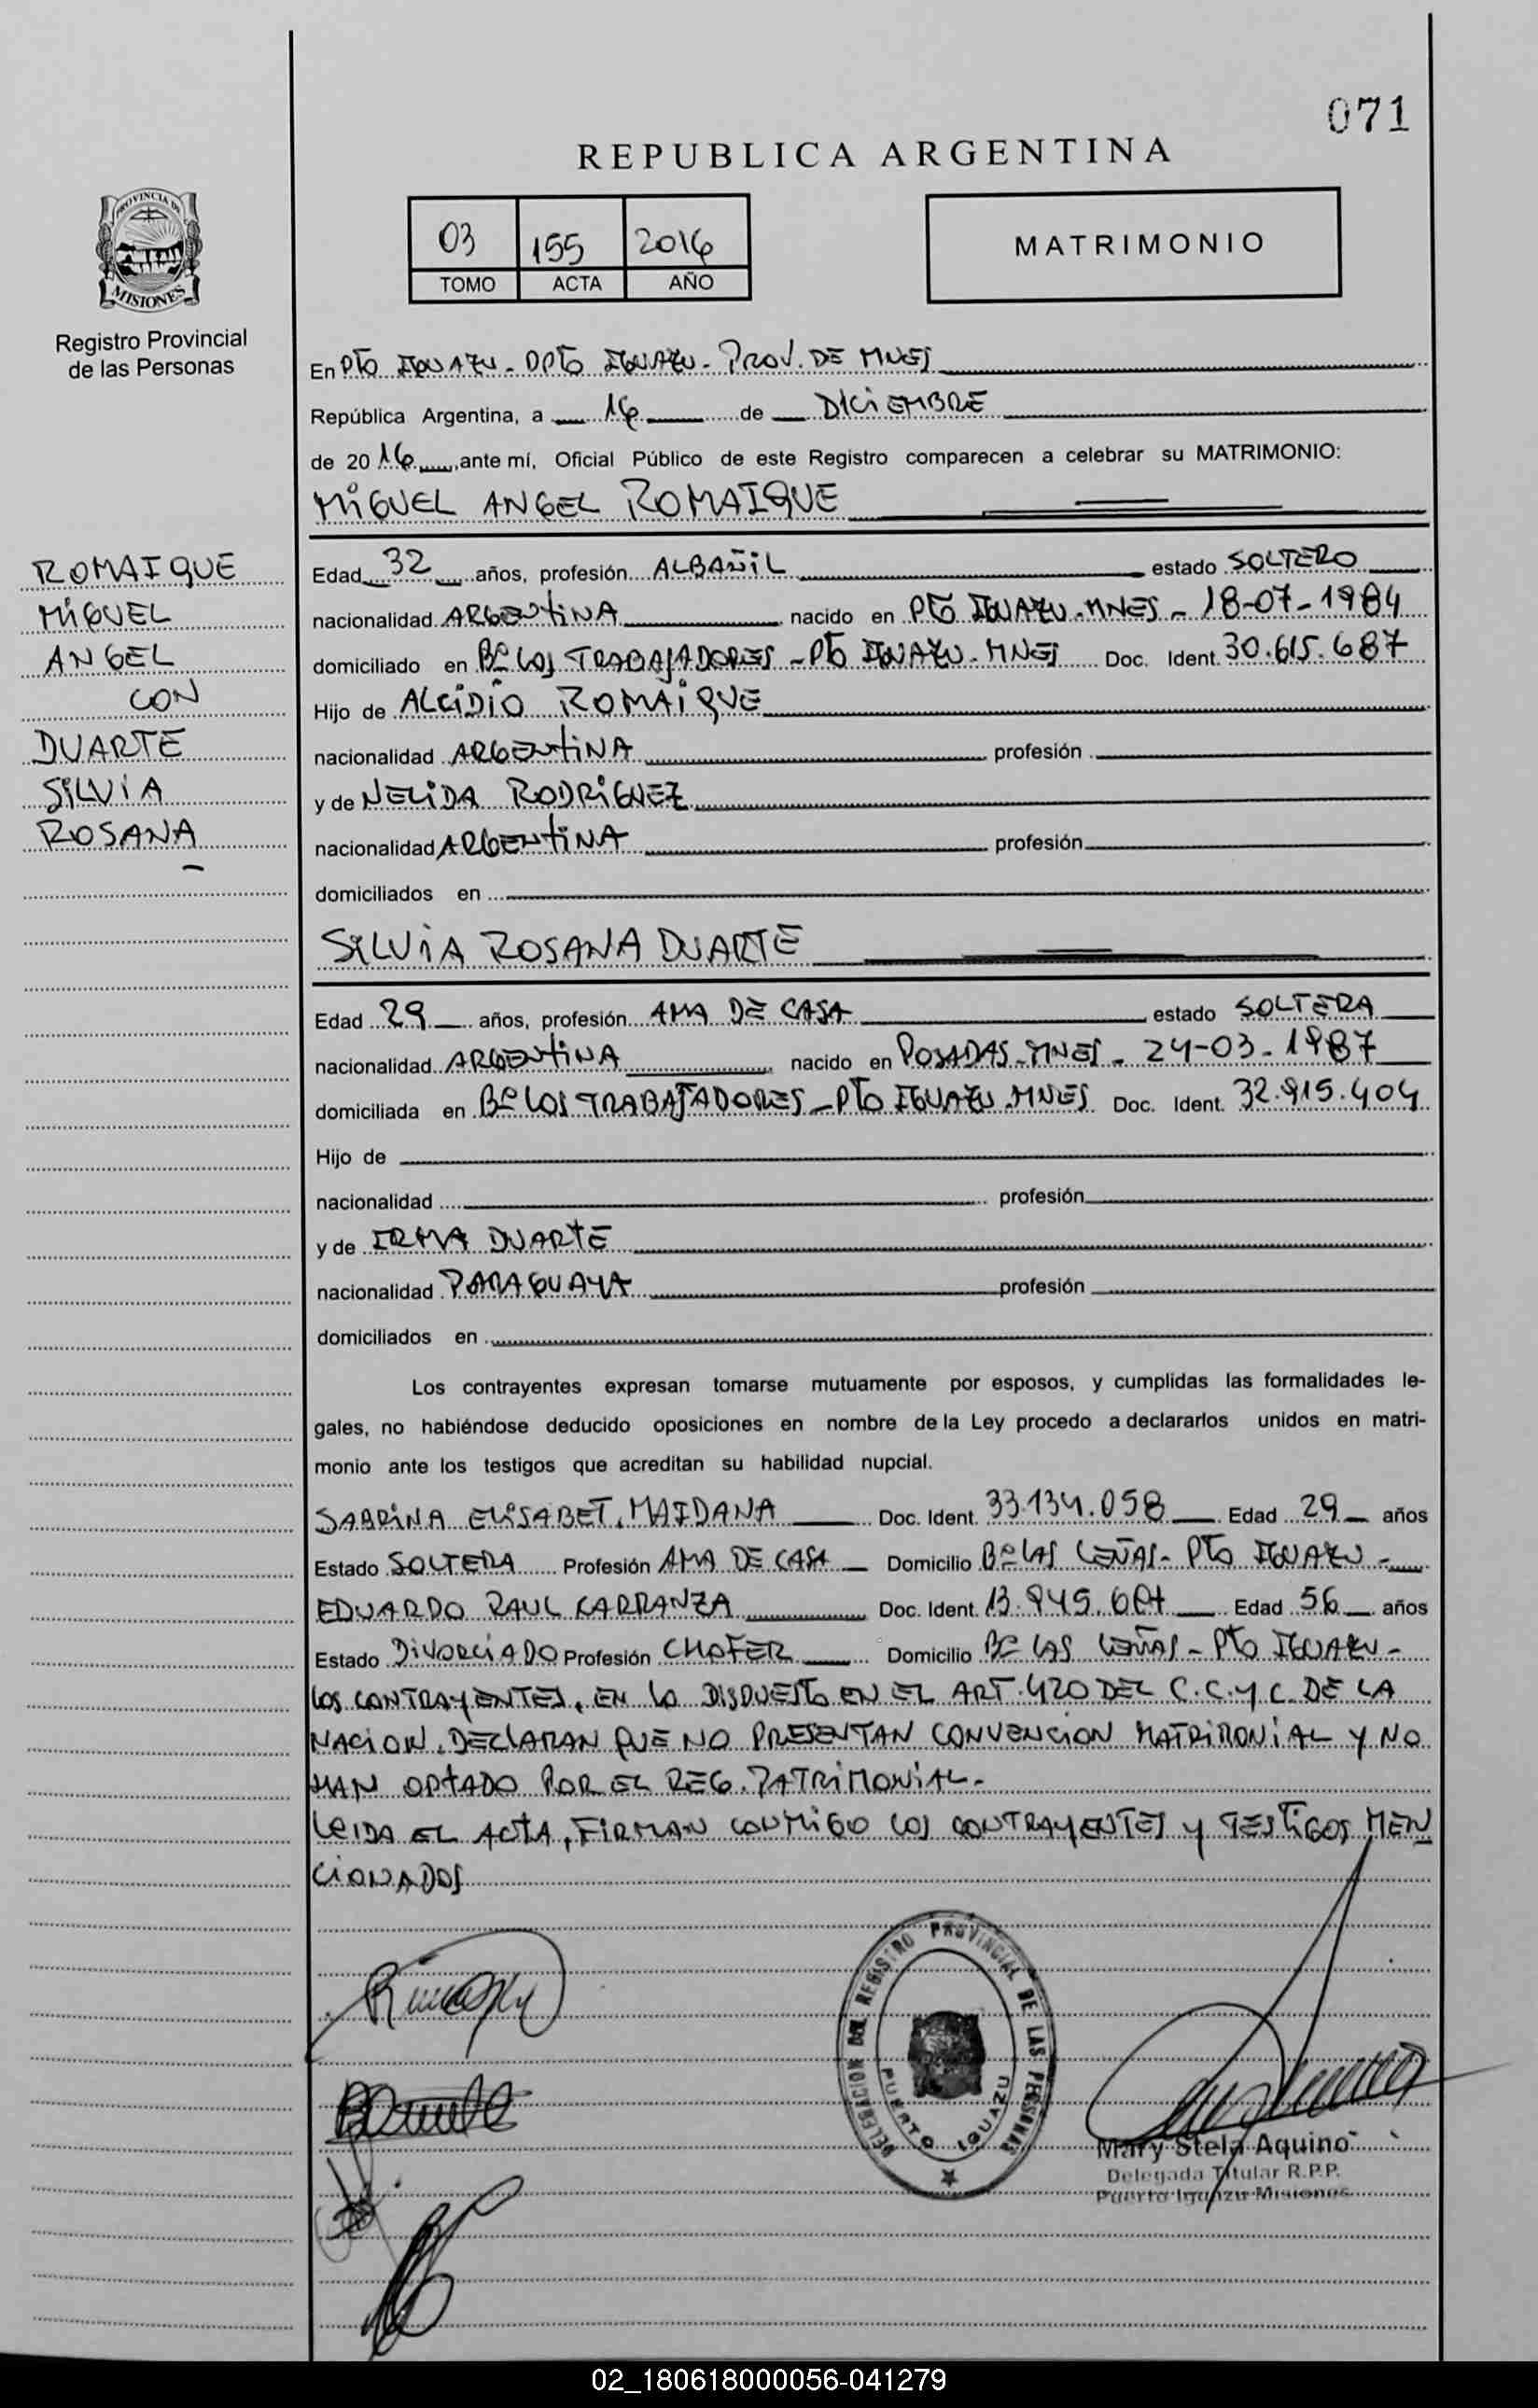 071
REPUBLICA ARGENTINA
03 155 2016
TOMO ACTA AÑO
MATRIMONIO
PROVINCIA DE
MISIONES
Registro Provincial
de las Personas
En PTO IGUAZU - DPTO IGUAZU - PROV. DE MNES
República Argentina, a 16 de DICIEMBRE
de 2016, ante mí, Oficial Público de este Registro comparecen a celebrar su MATRIMONIO:
MIGUEL ANGEL ROMAIQUE
ROMAIQUE
MIGUEL
ANGEL
CON
DUARTE
SILVIA
ROSANA
Edad 32 años, profesión ALBAÑIL estado SOLTERO
nacionalidad ARGENTINA nacido en PTO IGUAZU - MNES - 18-07-1984
domiciliado en Bº LOS TRABAJADORES - PTO IGUAZU - MNES Doc. Ident. 30.615.687
Hijo de ALCIDIO ROMAIQUE
nacionalidad ARGENTINA profesión
y de NELIDA RODRIGUEZ
nacionalidad ARGENTINA profesión
domiciliados en
SILVIA ROSANA DUARTE
Edad 29 años, profesión AMA DE CASA estado SOLTERA
nacionalidad ARGENTINA nacido en POSADAS - MNES - 24-03-1987
domiciliada en Bº LOS TRABAJADORES - PTO IGUAZU - MNES Doc. Ident. 32.915.404
Hijo de
nacionalidad profesión
y de IRMA DUARTE
nacionalidad PARAGUAYA profesión
domiciliados en
Los contrayentes expresan tomarse mutuamente por esposos, y cumplidas las formalidades le-
gales, no habiéndose deducido oposiciones en nombre de la Ley procedo a declararlos unidos en matri-
monio ante los testigos que acreditan su habilidad nupcial.
SABRINA ELISABET MAIDANA Doc. Ident. 33.134.058 Edad 29 años
Estado SOLTERA Profesión AMA DE CASA Domicilio Bº LAS LEÑAS - PTO IGUAZU -
EDUARDO RAUL CARRANZA Doc. Ident. Edad 56 años
Estado DIVORCIADO Profesión CHOFER Domicilio Bº LAS LEÑAS - PTO IGUAZU -
LOS CONTRAYENTES, EN LO DISPUESTO EN EL ART. 420 DEL C.C. Y C. DE LA
NACION, DECLARAN QUE NO PRESENTAN CONVENCION MATRIMONIAL Y NO
HAN OPTADO POR EL REG. PATRIMONIAL -
LEIDA EL ACTA, FIRMAN CONMIGO LOS CONTRAYENTES Y TESTIGOS MEN
CIONADOS
DELEGACION DEL REGISTRO PROVINCIAL DE LAS PERSONAS
PUERTO IGUAZU
Mary Stela Aquino
Delegada Titular R.P.P.
Puerto Iguazu Misiones
02_180618000056-041279